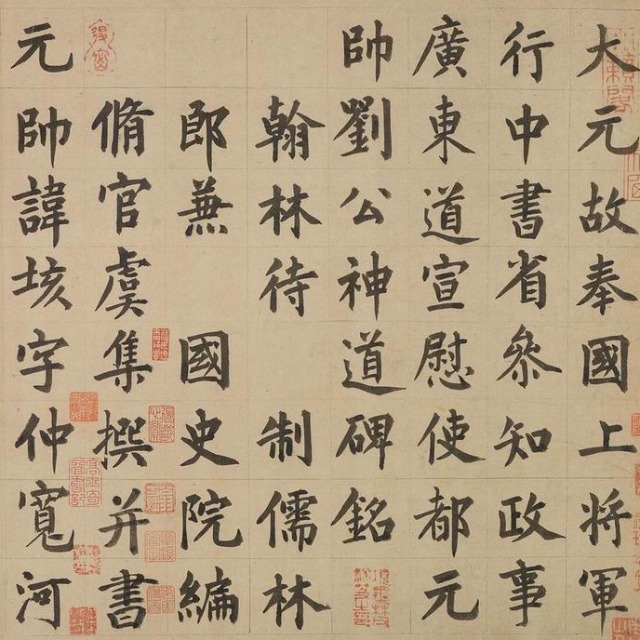 大元故奉國上將軍
行中書省參知政事
廣東道宣慰使都元
帥劉公神道碑銘
翰林待制儒林
郎兼國史院編
脩官虞集撰并書
元帥諱垓字仲寬河